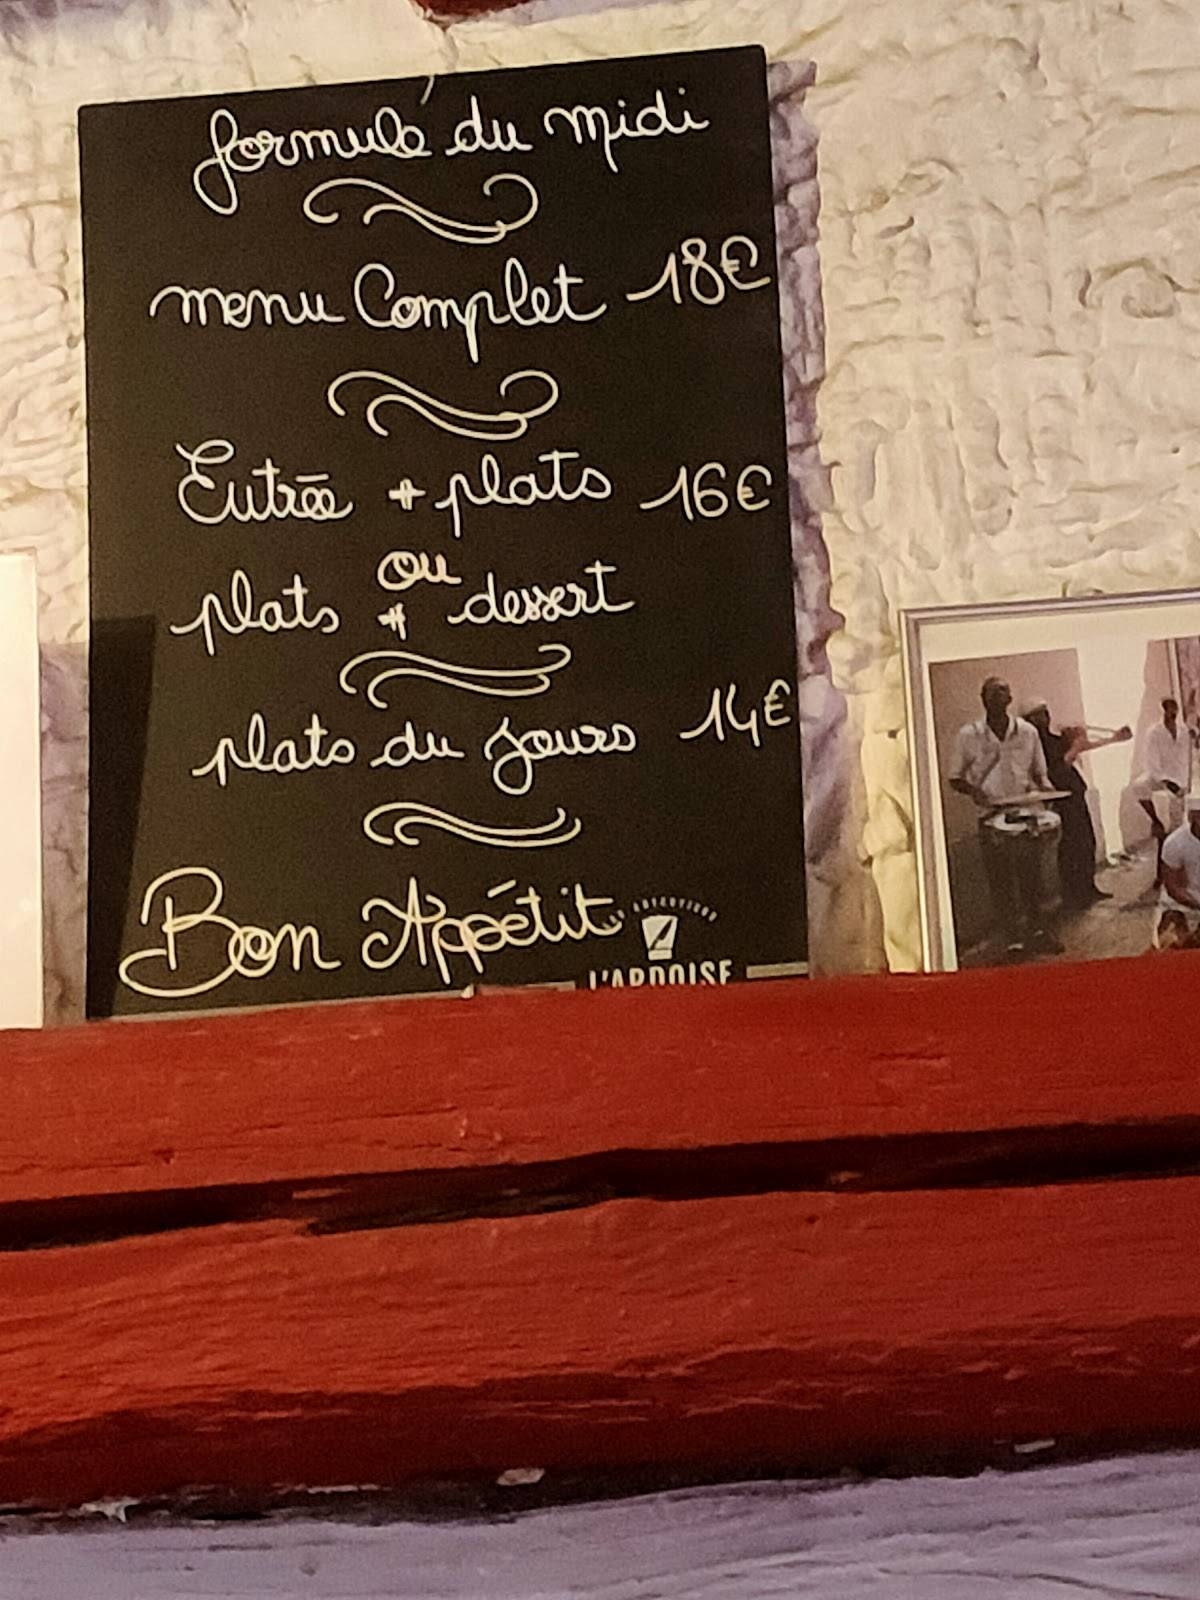 formule du midi
menu Complet 18€
Entrée + plats 16€
ou
plats + dessert
plats du jours 14€
Bon Appétit
L'ARDOISE